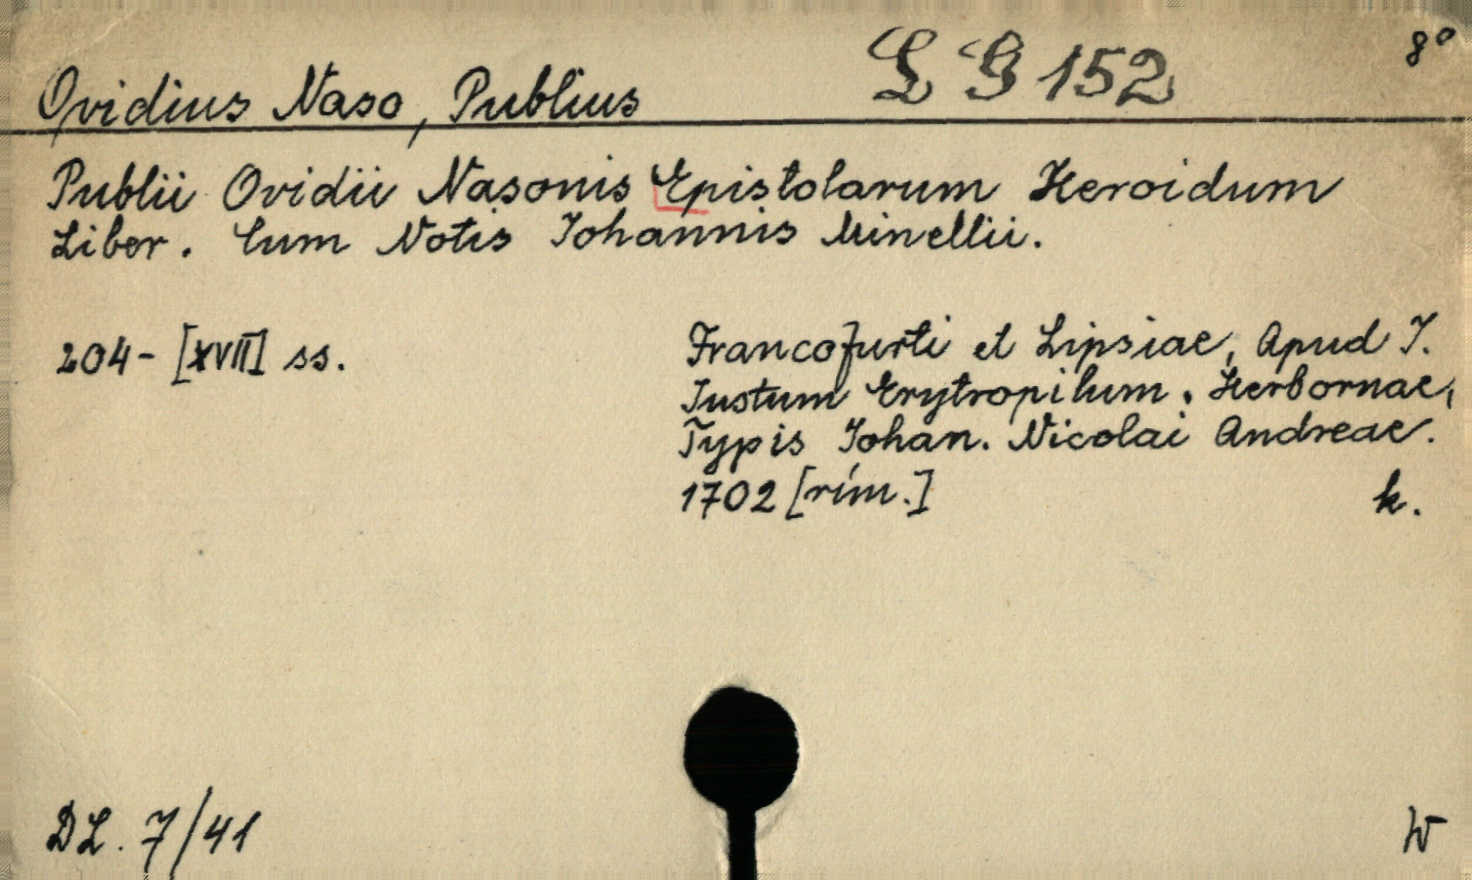 8°
L G 152
Ovidius Naso, Publius
Publii Ovidii Nasonis Epistolarum Heroidum
Liber. Cum Notis Iohannis Minellii.
204- [XVII] ss.
Francofurti et Lipsiae, Apud I.
Iustum Erytropilum. Herbornae,
Typis Iohan. Nicolai Andreae.
1702 [rím.]
k.
DL. 7/41
W